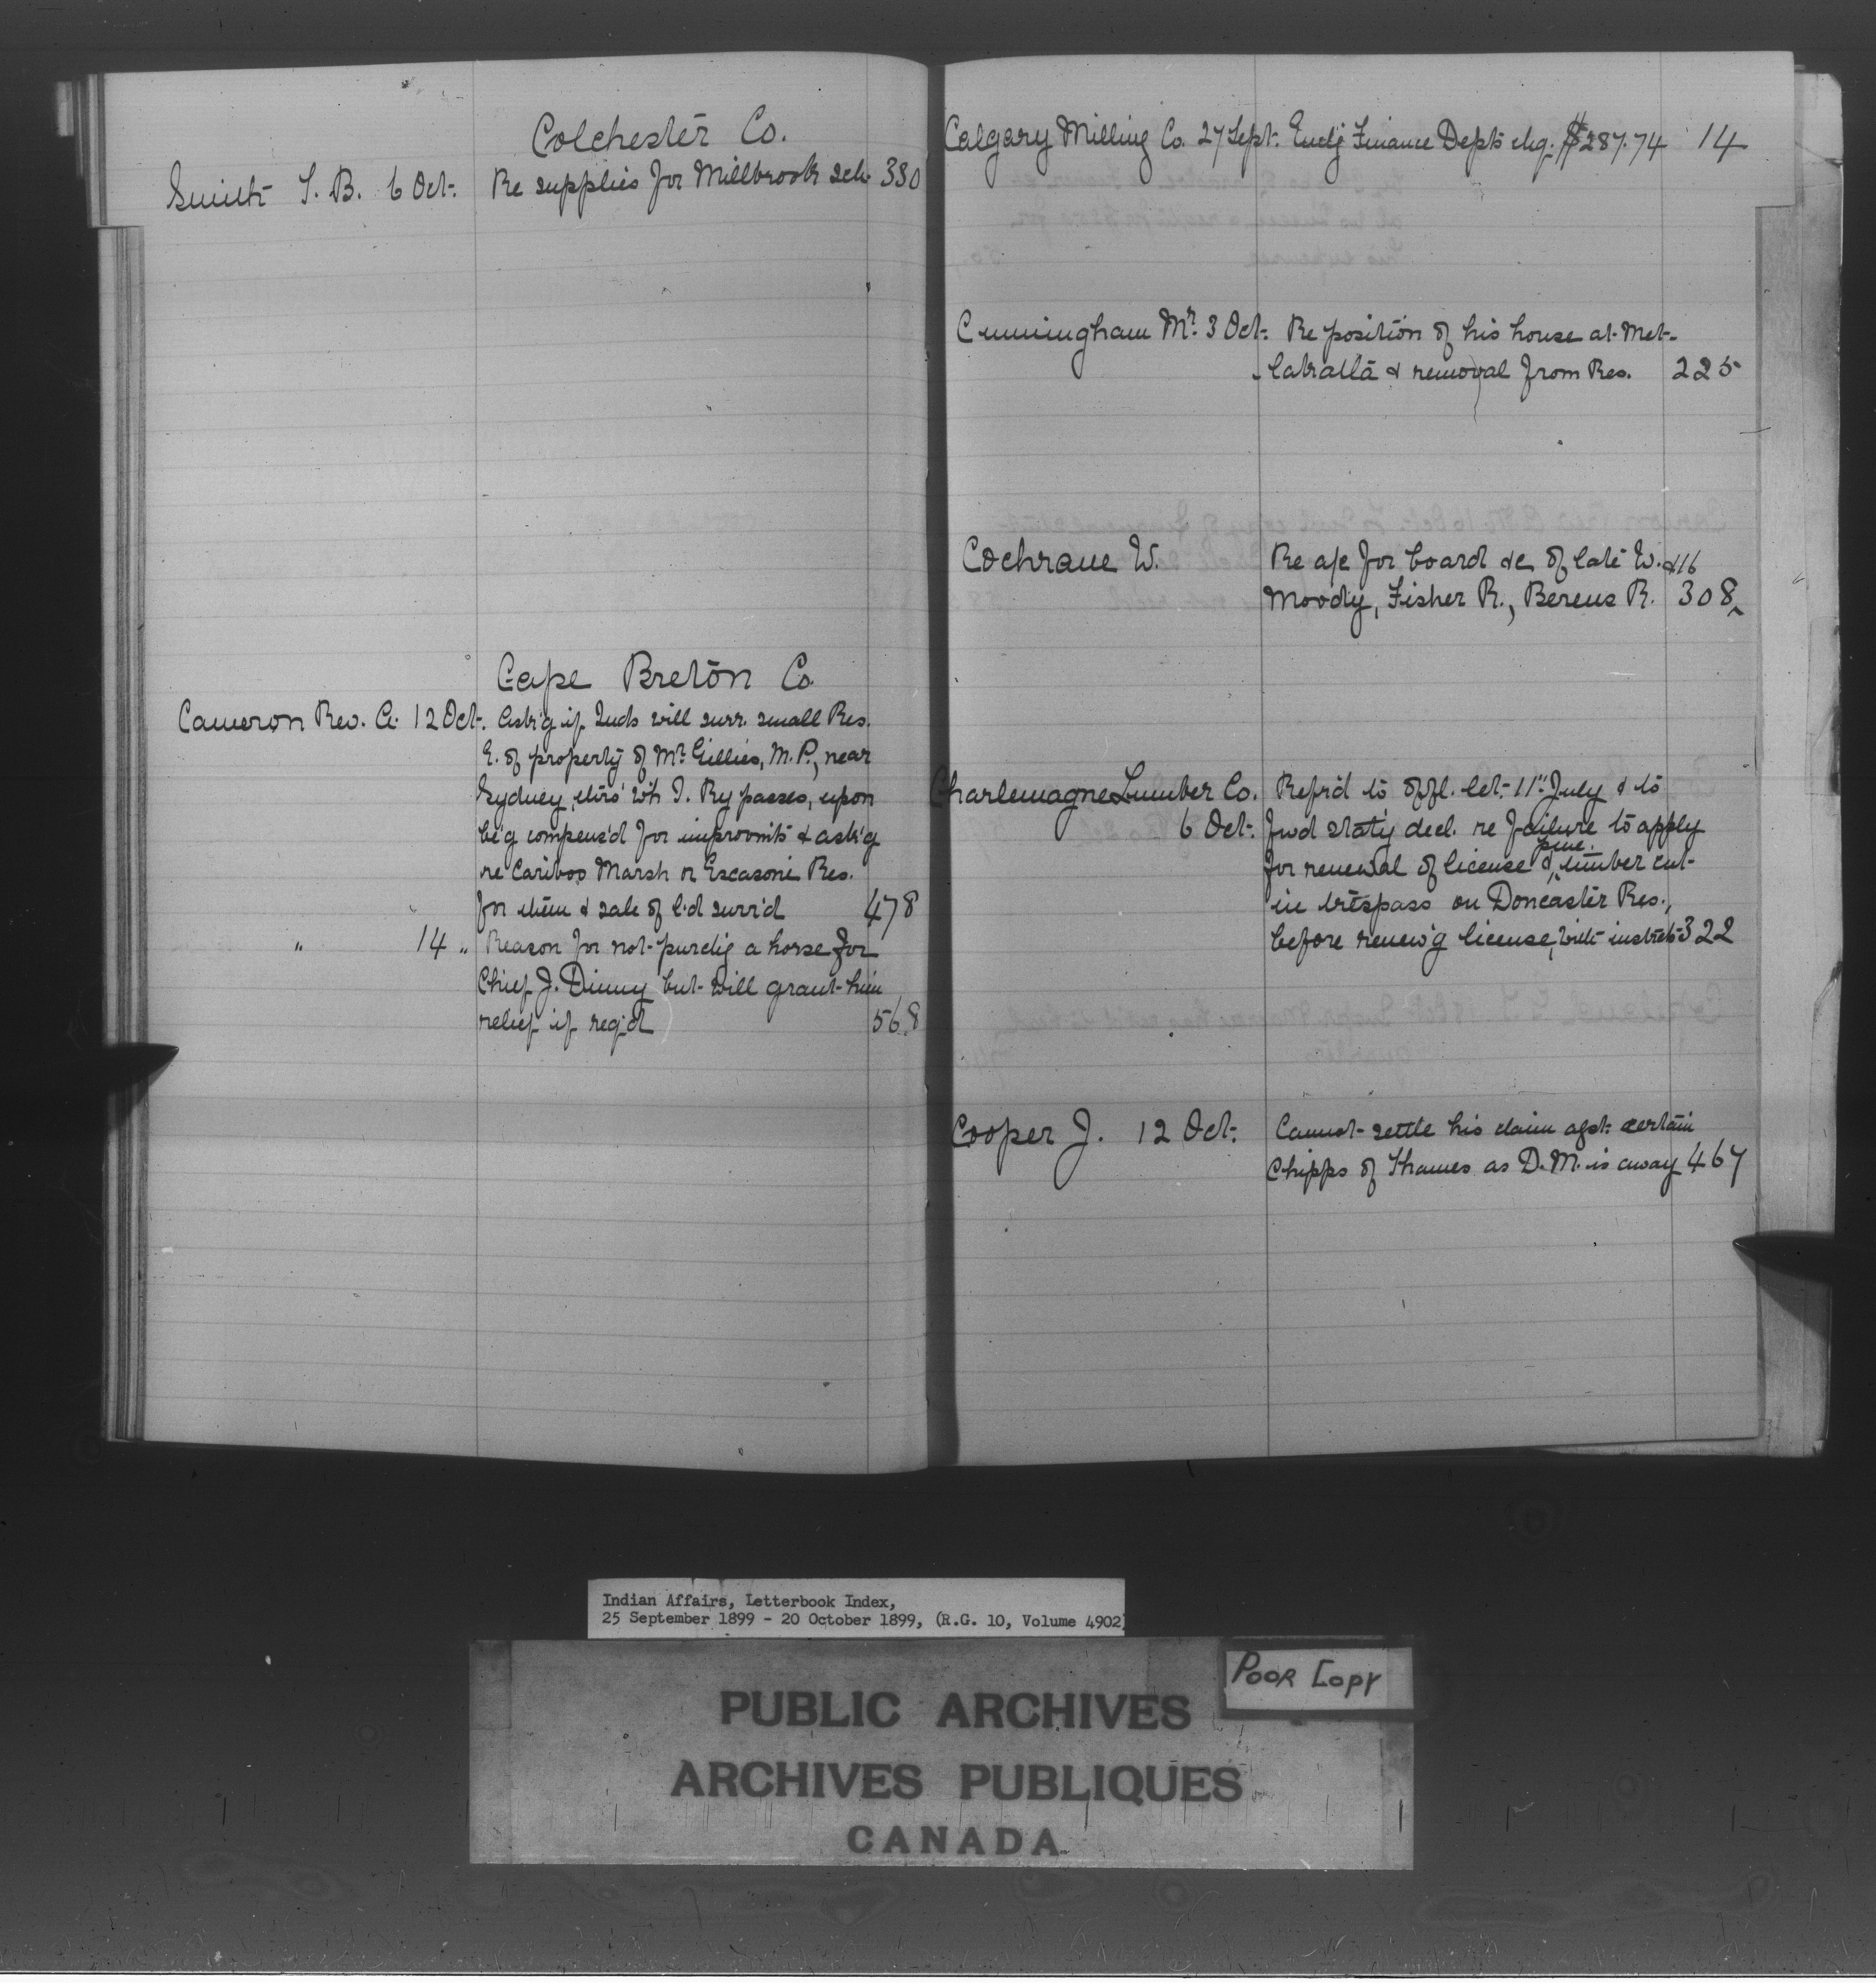 Colchester Co.
Smith T. B. 6 Oct. Re supplies for Millbrook sch. 330
Cape Breton Co
Cameron Rev. A. 12 Oct. Ask'g if Inds will surr. small Res.
E. of property of Mr. Gillies, M.P., near
Sydney, thro' wh I. Ry passes, upon
be'g compens'd for improvmts & ask'g
re Cariboo Marsh or Escasoni Res.
for them & sale of l'd surr'd 478
" 14 " Reason for not purchg a horse for
Chief J. Dinny but will grant him
relief if req'd 568
Calgary Milling Co. 27 Sept. Encl'g Finance Dept's chq. $287.74 14
Cunningham Mr. 3 Oct. Re position of his house at Met-
lakatla & removal from Res. 225
Cochrane W. Re a/c for board &c of late W. &116
Moody, Fisher R., Berens R. 308
Charlemagne Lumber Co. Ref'r'd to offl. let. 11" July & to
6 Oct. fwd stat'y decl. re failure to apply
pine.
for renewal of license & timber cut
in trespass on Doncaster Res.,
before renew'g license, with instrcts 322
Cooper J. 12 Oct. Cannot settle his claim agst. certain
Chipps of Thames as D.M. is away 467
Indian Affairs, Letterbook Index,
25 September 1899 - 20 October 1899, (R.G. 10, Volume 4902)
POOR COPY
PUBLIC ARCHIVES
ARCHIVES PUBLIQUES
CANADA